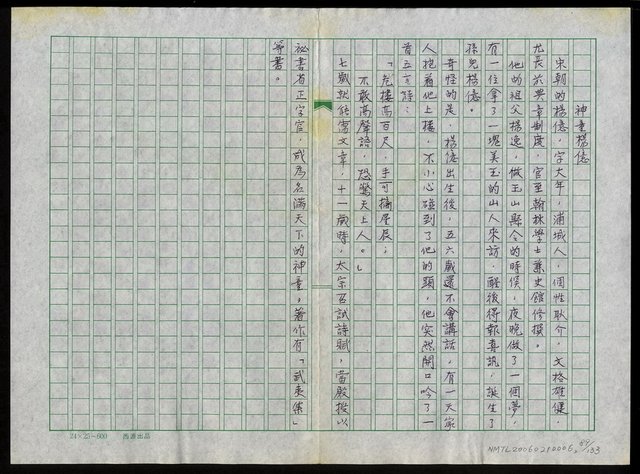 神童楊億
宋朝的楊億，字大年，浦城人，個性耿介，文格雄健，
尤長於典章制度，官至翰林學士兼史館修撰。
他的祖父楊逸，做玉山縣令的時候，夜晚做了一個夢，
有一位拿了一塊美玉的山人來訪，醒後得報喜訊，誕生了
孫兒楊億。
奇怪的是，楊億出生後，五六歲還不會講話，有一天家
人抱着他上樓，不小心碰到了他的頭，他突然開口吟了一
首五言詩：
「危樓高百尺，手可摘星辰；
不敢高聲語，恐驚天上人。」
七歲就能寫文章，十一歲時，太宗召試詩賦，當殿授以
祕書省正字官，成為名滿天下的神童，著作有「武夷集」
等書。
24×25=600 西源出品
NMTL20060290006
89/133